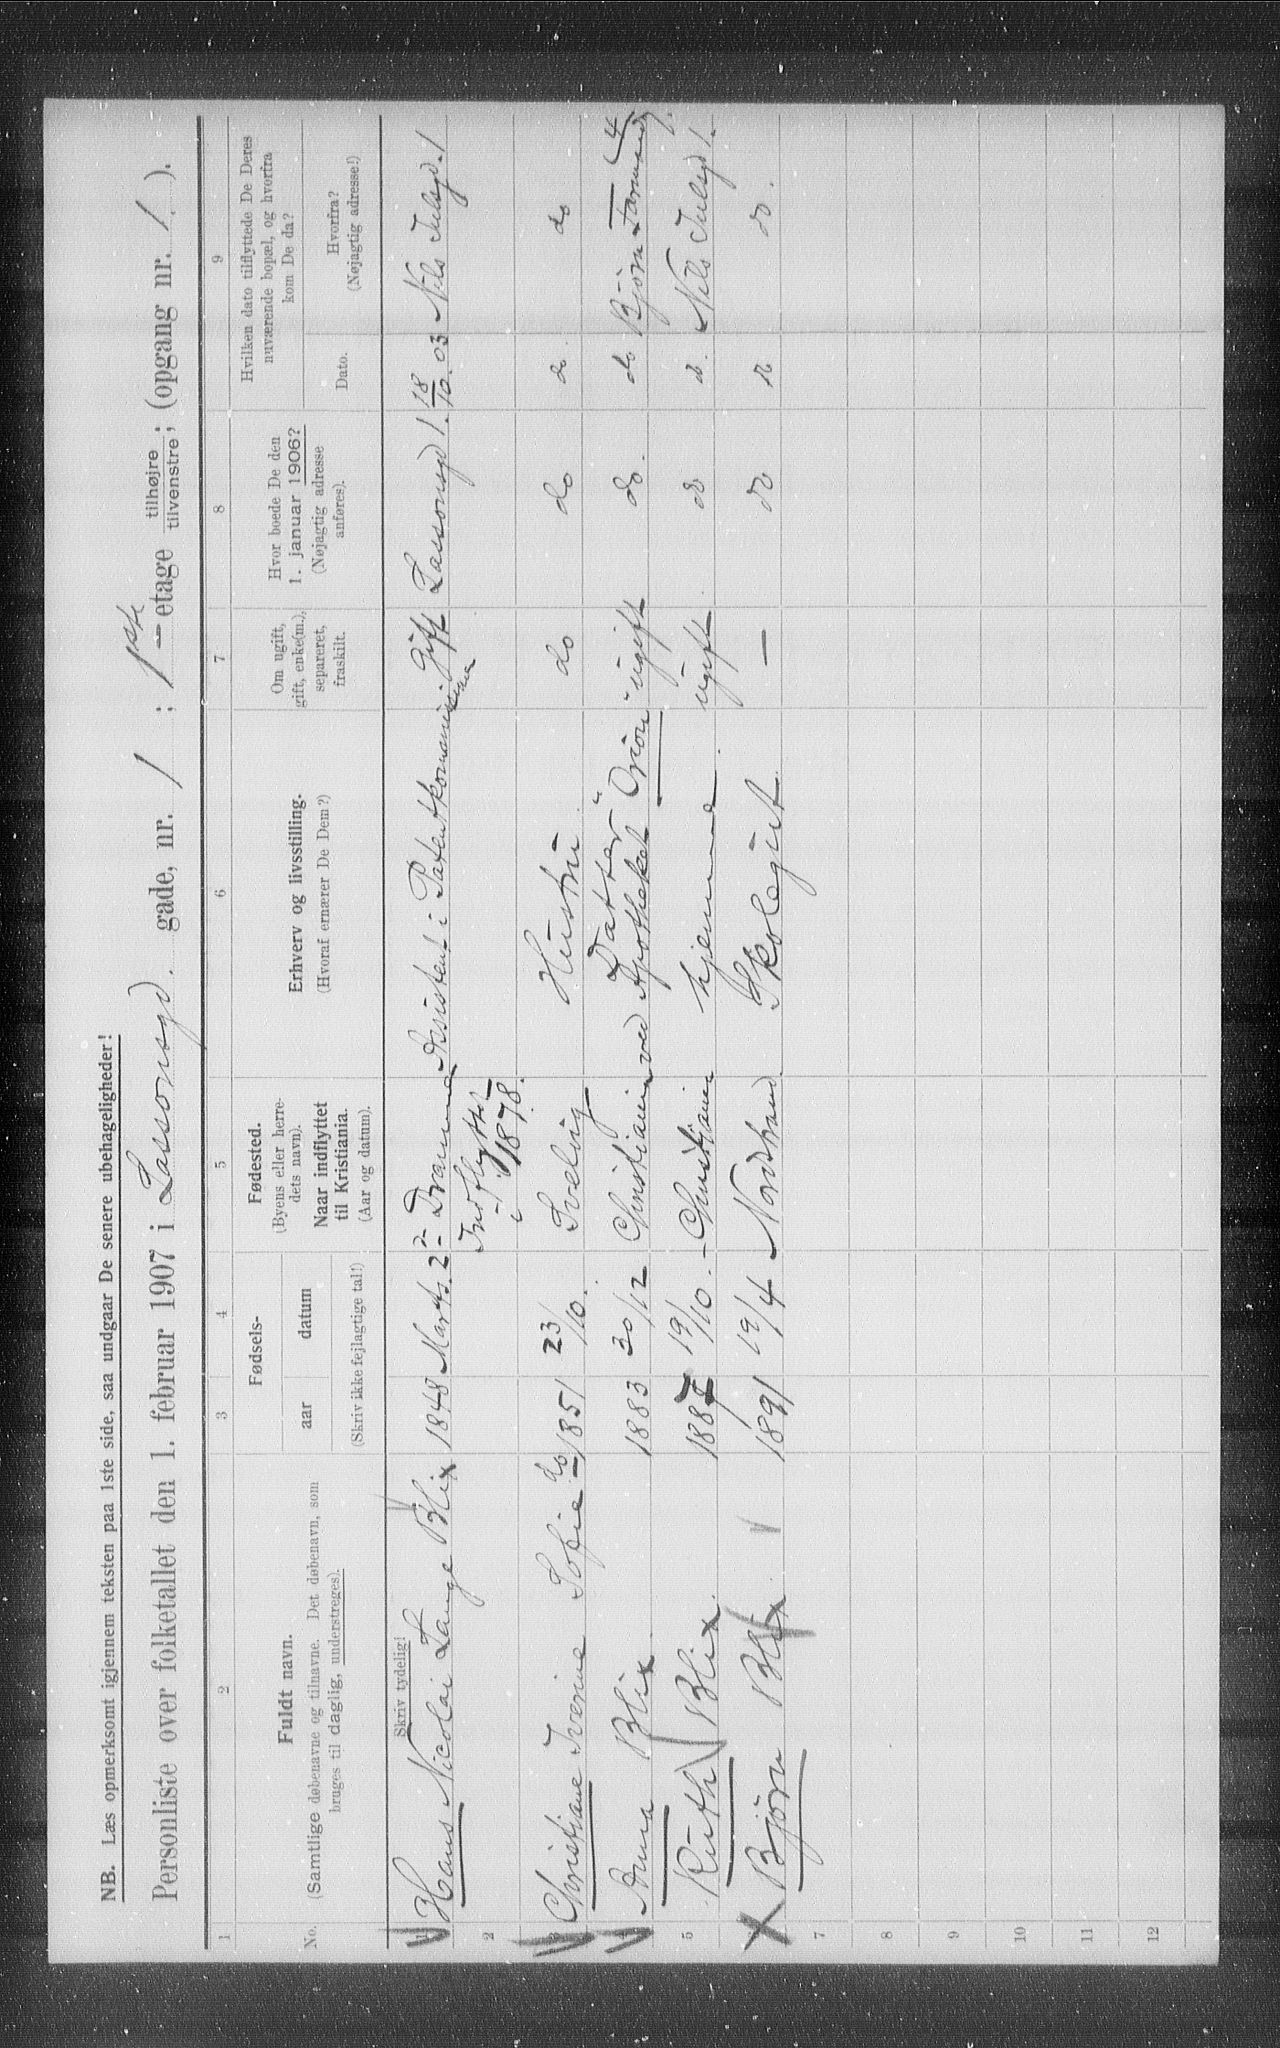 NB. Læs opmerksomt igjennem teksten paa 1ste side, saa undgaar De senere ubehageligheder!
Personliste over folketallet den 1. februar 1907 i Lassonsgd. gade, nr. 1; 1ste etage tilhøjre tilvenstre; (opgang nr. 1.).
1 2 3 4 5 6 7 8 9
No.
Fuldt navn.
(Samtlige døbenavne og tilnavne. Det døbenavn, som
bruges til daglig, understreges).
Fødsels-
aar datum
(Skriv ikke fejlagtige tal!)
Fødested.
(Byens eller herre-
dets navn).
Naar indflyttet
til Kristiania.
(Aar og datum).
Erhverv og livsstilling.
(Hvoraf ernærer De Dem?)
Om ugift,
gift, enke(m.),
separeret,
fraskilt.
Hvor boede De den
1. januar 1906?
(Nøjagtig adresse
anføres).
Hvilken dato tilflyttede De Deres
nuværende bopæl, og hvorfra
kom De da?
Dato.
Hvorfra?
(Nøjagtig adresse!)
Skriv tydelig!
1 Hans Nicolai Lange Blix 1848 Marts. 2 Drammen Assistent i Patentkommissionen Gift Lassonsgd 1. 18/10.03 Nils Julsgd. 1
2 Indflyttet
i 1878.
3 Christiane Iverine Sofie do 1851 23/10. Svelvig Hustru. do do do. do
4 Anna Blix. 1883 30/12 Christiania Datter ved Apotheket "Orion" ugift do. do Bjørn Farmandsgd. 4
5 Ruth Blix. 1887 19/10. Christiania hjemme. ugift do d. Nils Julsgd 1.
Bjørn Blix. 1891 19/4 Nordstrand Skolegut. — do do do.
7
8
9
10
11
12